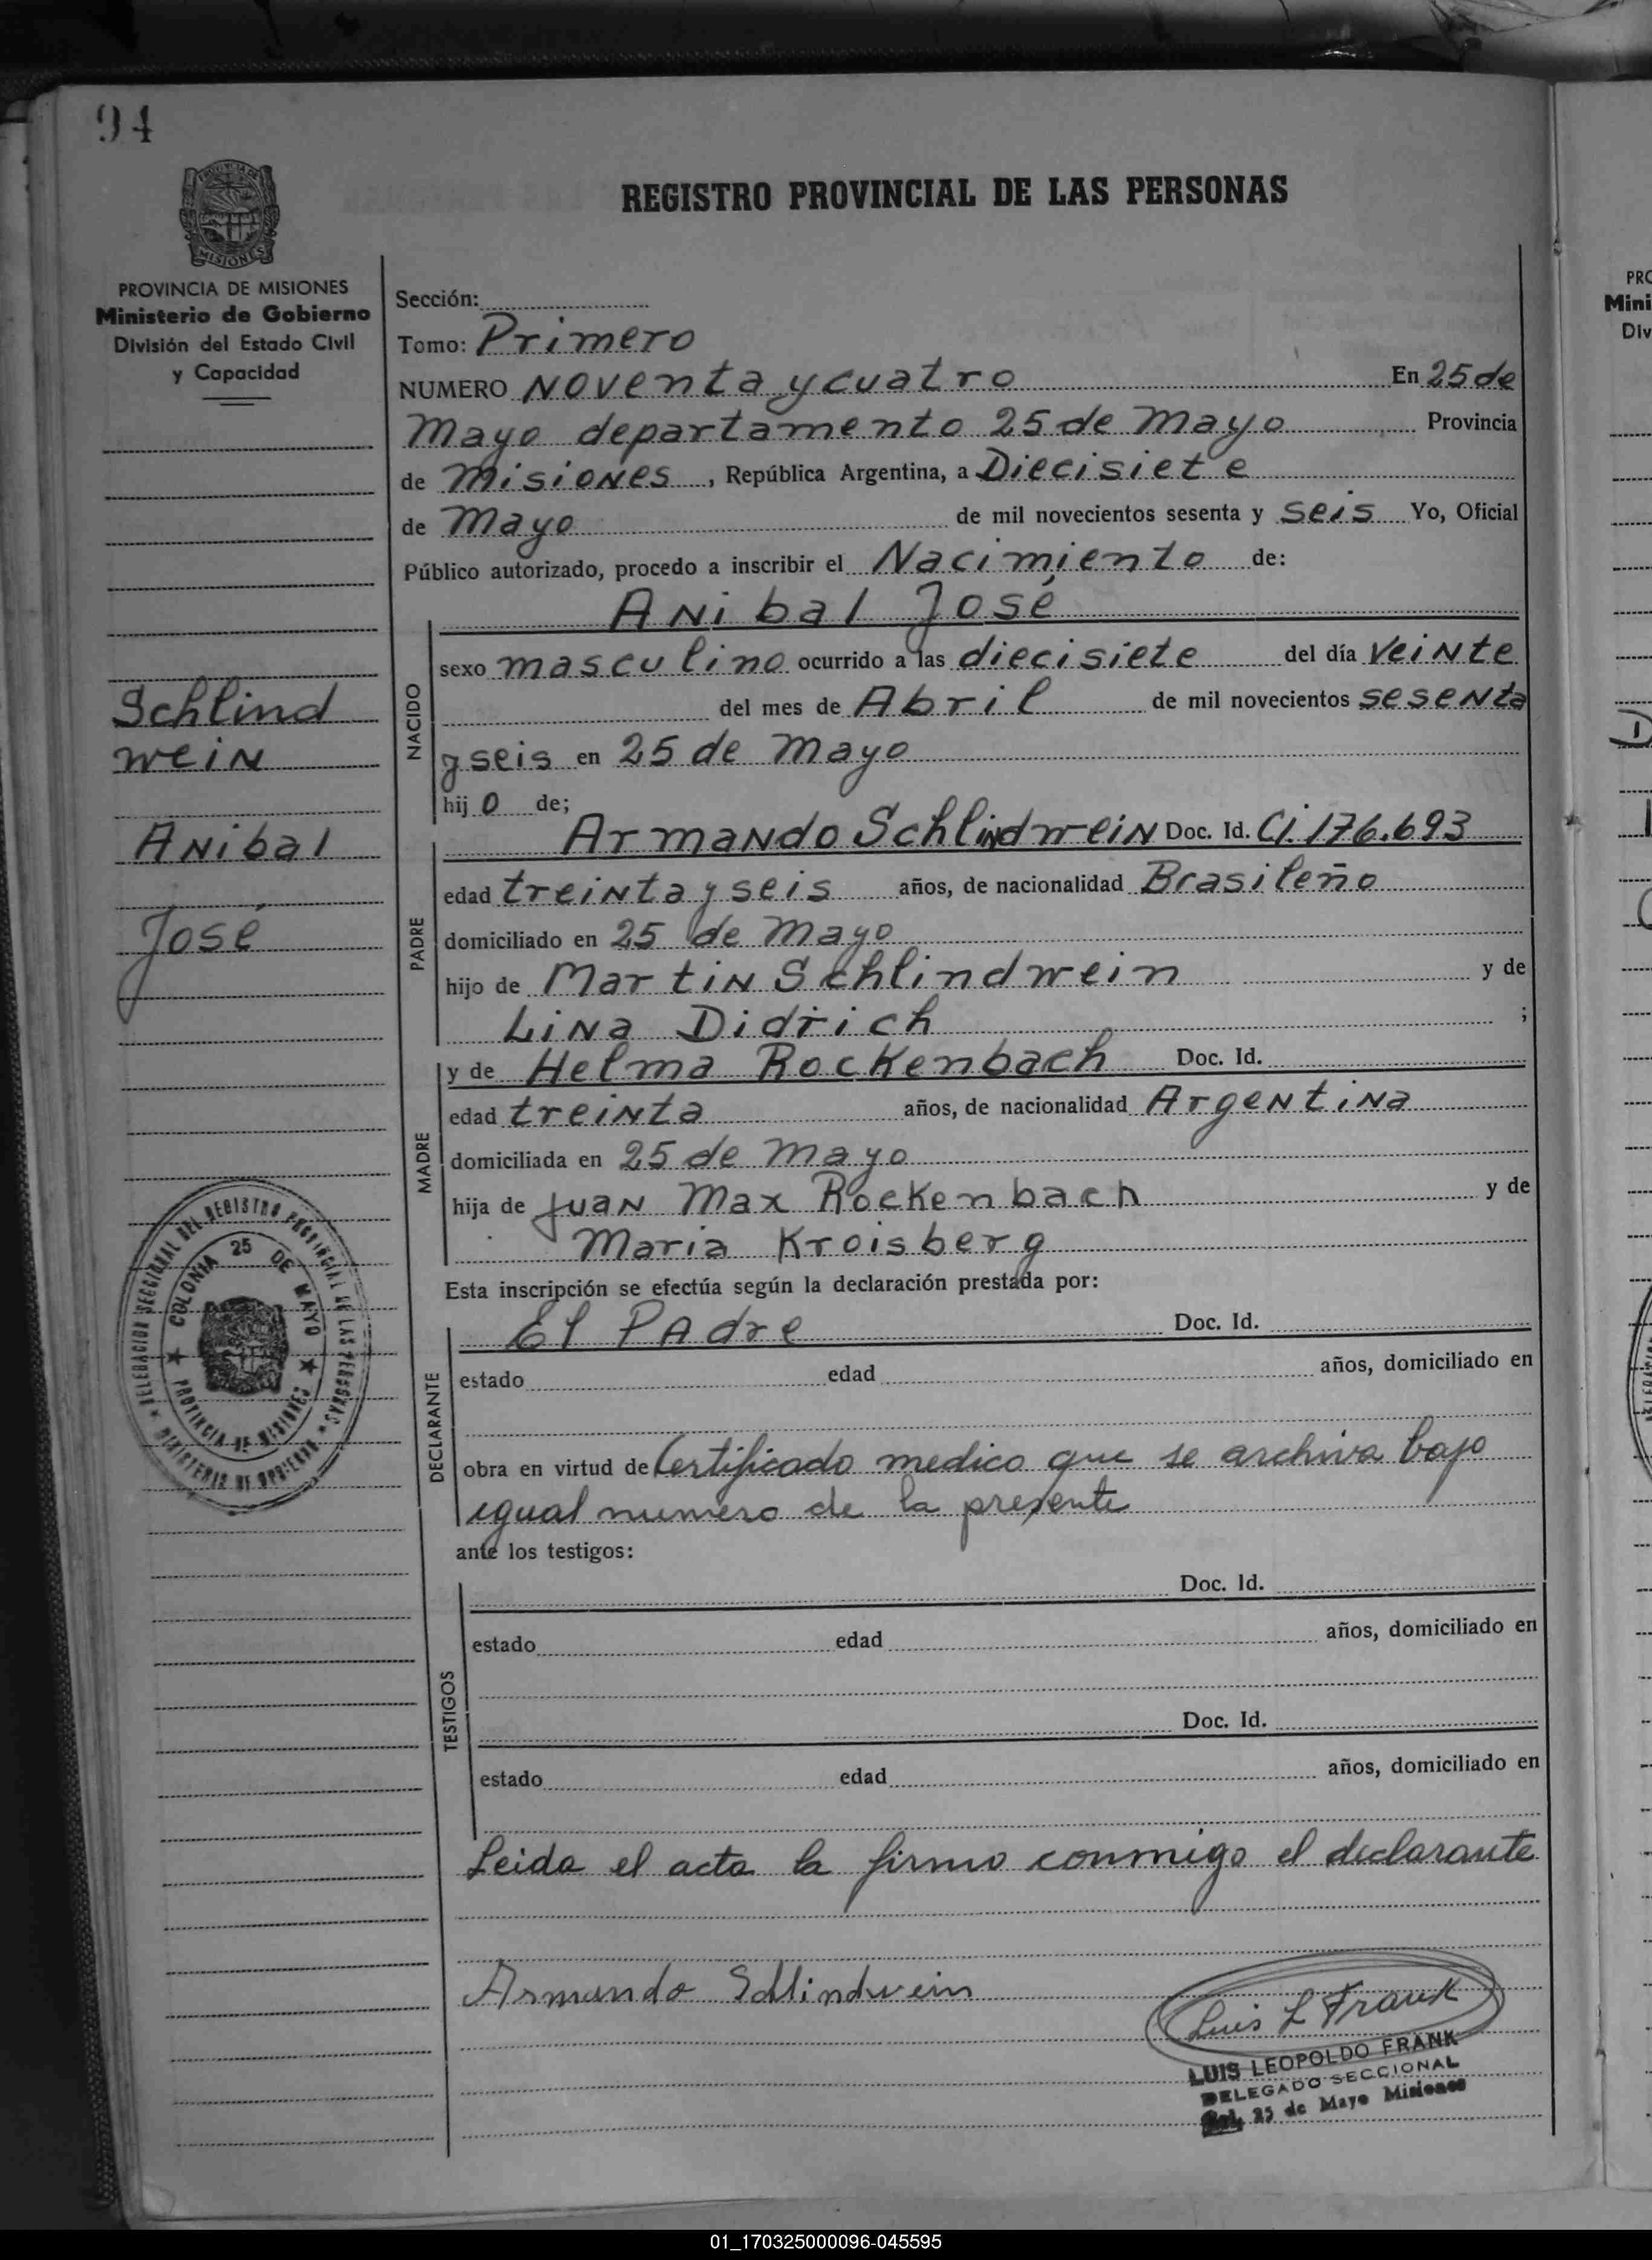 94
PROVINCIA DE
MISIONES
REGISTRO PROVINCIAL DE LAS PERSONAS
PROVINCIA DE MISIONES
Ministerio de Gobierno
División del Estado Civil
y Capacidad
Schlind
wein
Anibal
José
DELEGACION SECCIONAL DEL REGISTRO PROVINCIAL DE LAS PERSONAS
MINISTERIO DE GOBIERNO
COLONIA 25 DE MAYO
PROVINCIA DE MISIONES
Sección:
Tomo: Primero
NUMERO Noventa y cuatro En 25 de
Mayo departamento 25 de Mayo Provincia
de Misiones, República Argentina, a Diecisiete
de Mayo de mil novecientos sesenta y seis Yo, Oficial
Público autorizado, procedo a inscribir el Nacimiento de:
NACIDO
Anibal José
sexo masculino ocurrido a las diecisiete del día veinte
del mes de Abril de mil novecientos sesenta
y seis en 25 de Mayo
hijo de;
PADRE
Armando Schlindwein Doc. Id. CI. 176.693
edad treinta y seis años, de nacionalidad Brasileño
domiciliado en 25 de Mayo
hijo de Martin Schlindwein y de
Lina Didrich ;
MADRE
y de Helma Rockenbach Doc. Id.
edad treinta años, de nacionalidad Argentina
domiciliada en 25 de Mayo
hija de Juan Max Rockenbach y de
Maria Kroisberg
Esta inscripción se efectúa según la declaración prestada por:
DECLARANTE
El Padre Doc. Id.
estado edad años, domiciliado en
obra en virtud de Certificado medico que se archiva bajo
igual numero de la presente
ante los testigos:
TESTIGOS
Doc. Id.
estado edad años, domiciliado en
Doc. Id.
estado edad años, domiciliado en
Leida el acta la firma conmigo el declarante
Armando Schlindwein
Luis L Frank
LUIS LEOPOLDO FRANK
DELEGADO SECCIONAL
Col. 25 de Mayo Misiones
PRO
Mini
Div
01_170325000096-045595